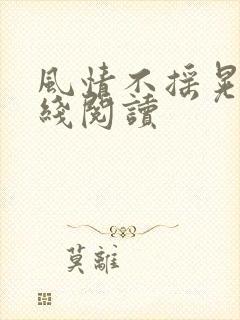 風情不摇晃
綫閱讀
莫離